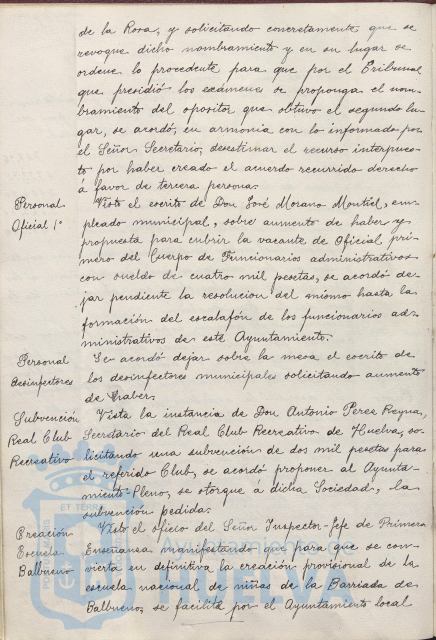 de la Rosa, y solicitando concretamente que se
revoque dicho nombramiento y en su lugar se
ordene lo procedente para que por el Tribunal
que presidió los exámenes se proponga el nom-
bramiento del opositor que obtuvo el segundo lu-
gar, se acordó, en armonia con lo informado por
el Señor Secretario, desestimar el recurso interpues-
to por haber creado el acuerdo recurrido derecho
á favor de tercera persona.
Personal
Oficial 1º
Visto el escrito de Don José Morano Montiel, em-
pleado municipal, sobre aumento de haber y
propuesta para cubrir la vacante de Oficial pri-
mero del Cuerpo de Funcionarios administrativos
con sueldo de cuatro mil pesetas, se acordó de-
jar pendiente la resolucion del mismo hasta la
formación del escalafón de los funcionarios ad-
ministrativos de este Ayuntamiento.
Personal
Desinfectores
Se acordó dejar sobre la mesa el escrito de
los desinfectores municipales solicitando aumento
de haber.
Subvención
Real Club
Recreativo
Vista la instancia de Don Antonio Perea Reyna,
Secretario del Real Club Recreativo de Huelva, so-
licitando una subvención de dos mil pesetas para
el referido Club, se acordó proponer al Ayunta-
miento-Pleno, se otorgue á dicha Sociedad, la
subvención pedida.
Creación
Escuela
Balbueno
Visto el oficio del Señor Inspector-Jefe de Primera
Enseñanza manifestando que para que se con-
vierta en definitiva la creación provisional de la
escuela nacional de niñas de la Barriada de
Balbueno, se facilite por el Ayuntamiento local
ET TERRÆ
Ayuntamiento de
HUELVA